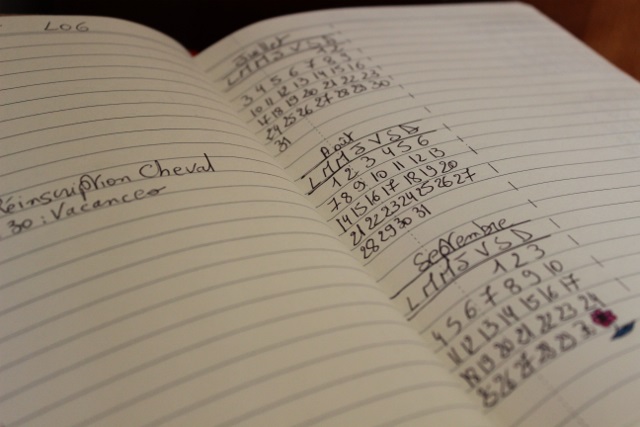 LOG
Réinscription Cheval
30 : Vacances
Juillet
L M M J V S D
1 2
3 4 5 6 7 8 9
10 11 12 13 14 15 16
17 18 19 20 21 22 23
24 25 26 27 28 29 30
31
Août
L M M J V S D
1 2 3 4 5 6
7 8 9 10 11 12 13
14 15 16 17 18 19 20
21 22 23 24 25 26 27
28 29 30 31
Septembre
L M M J V S D
1 2 3
4 5 6 7 8 9 10
11 12 13 14 15 16 17
18 19 20 21 22 23 24
25 26 27 28 29 30